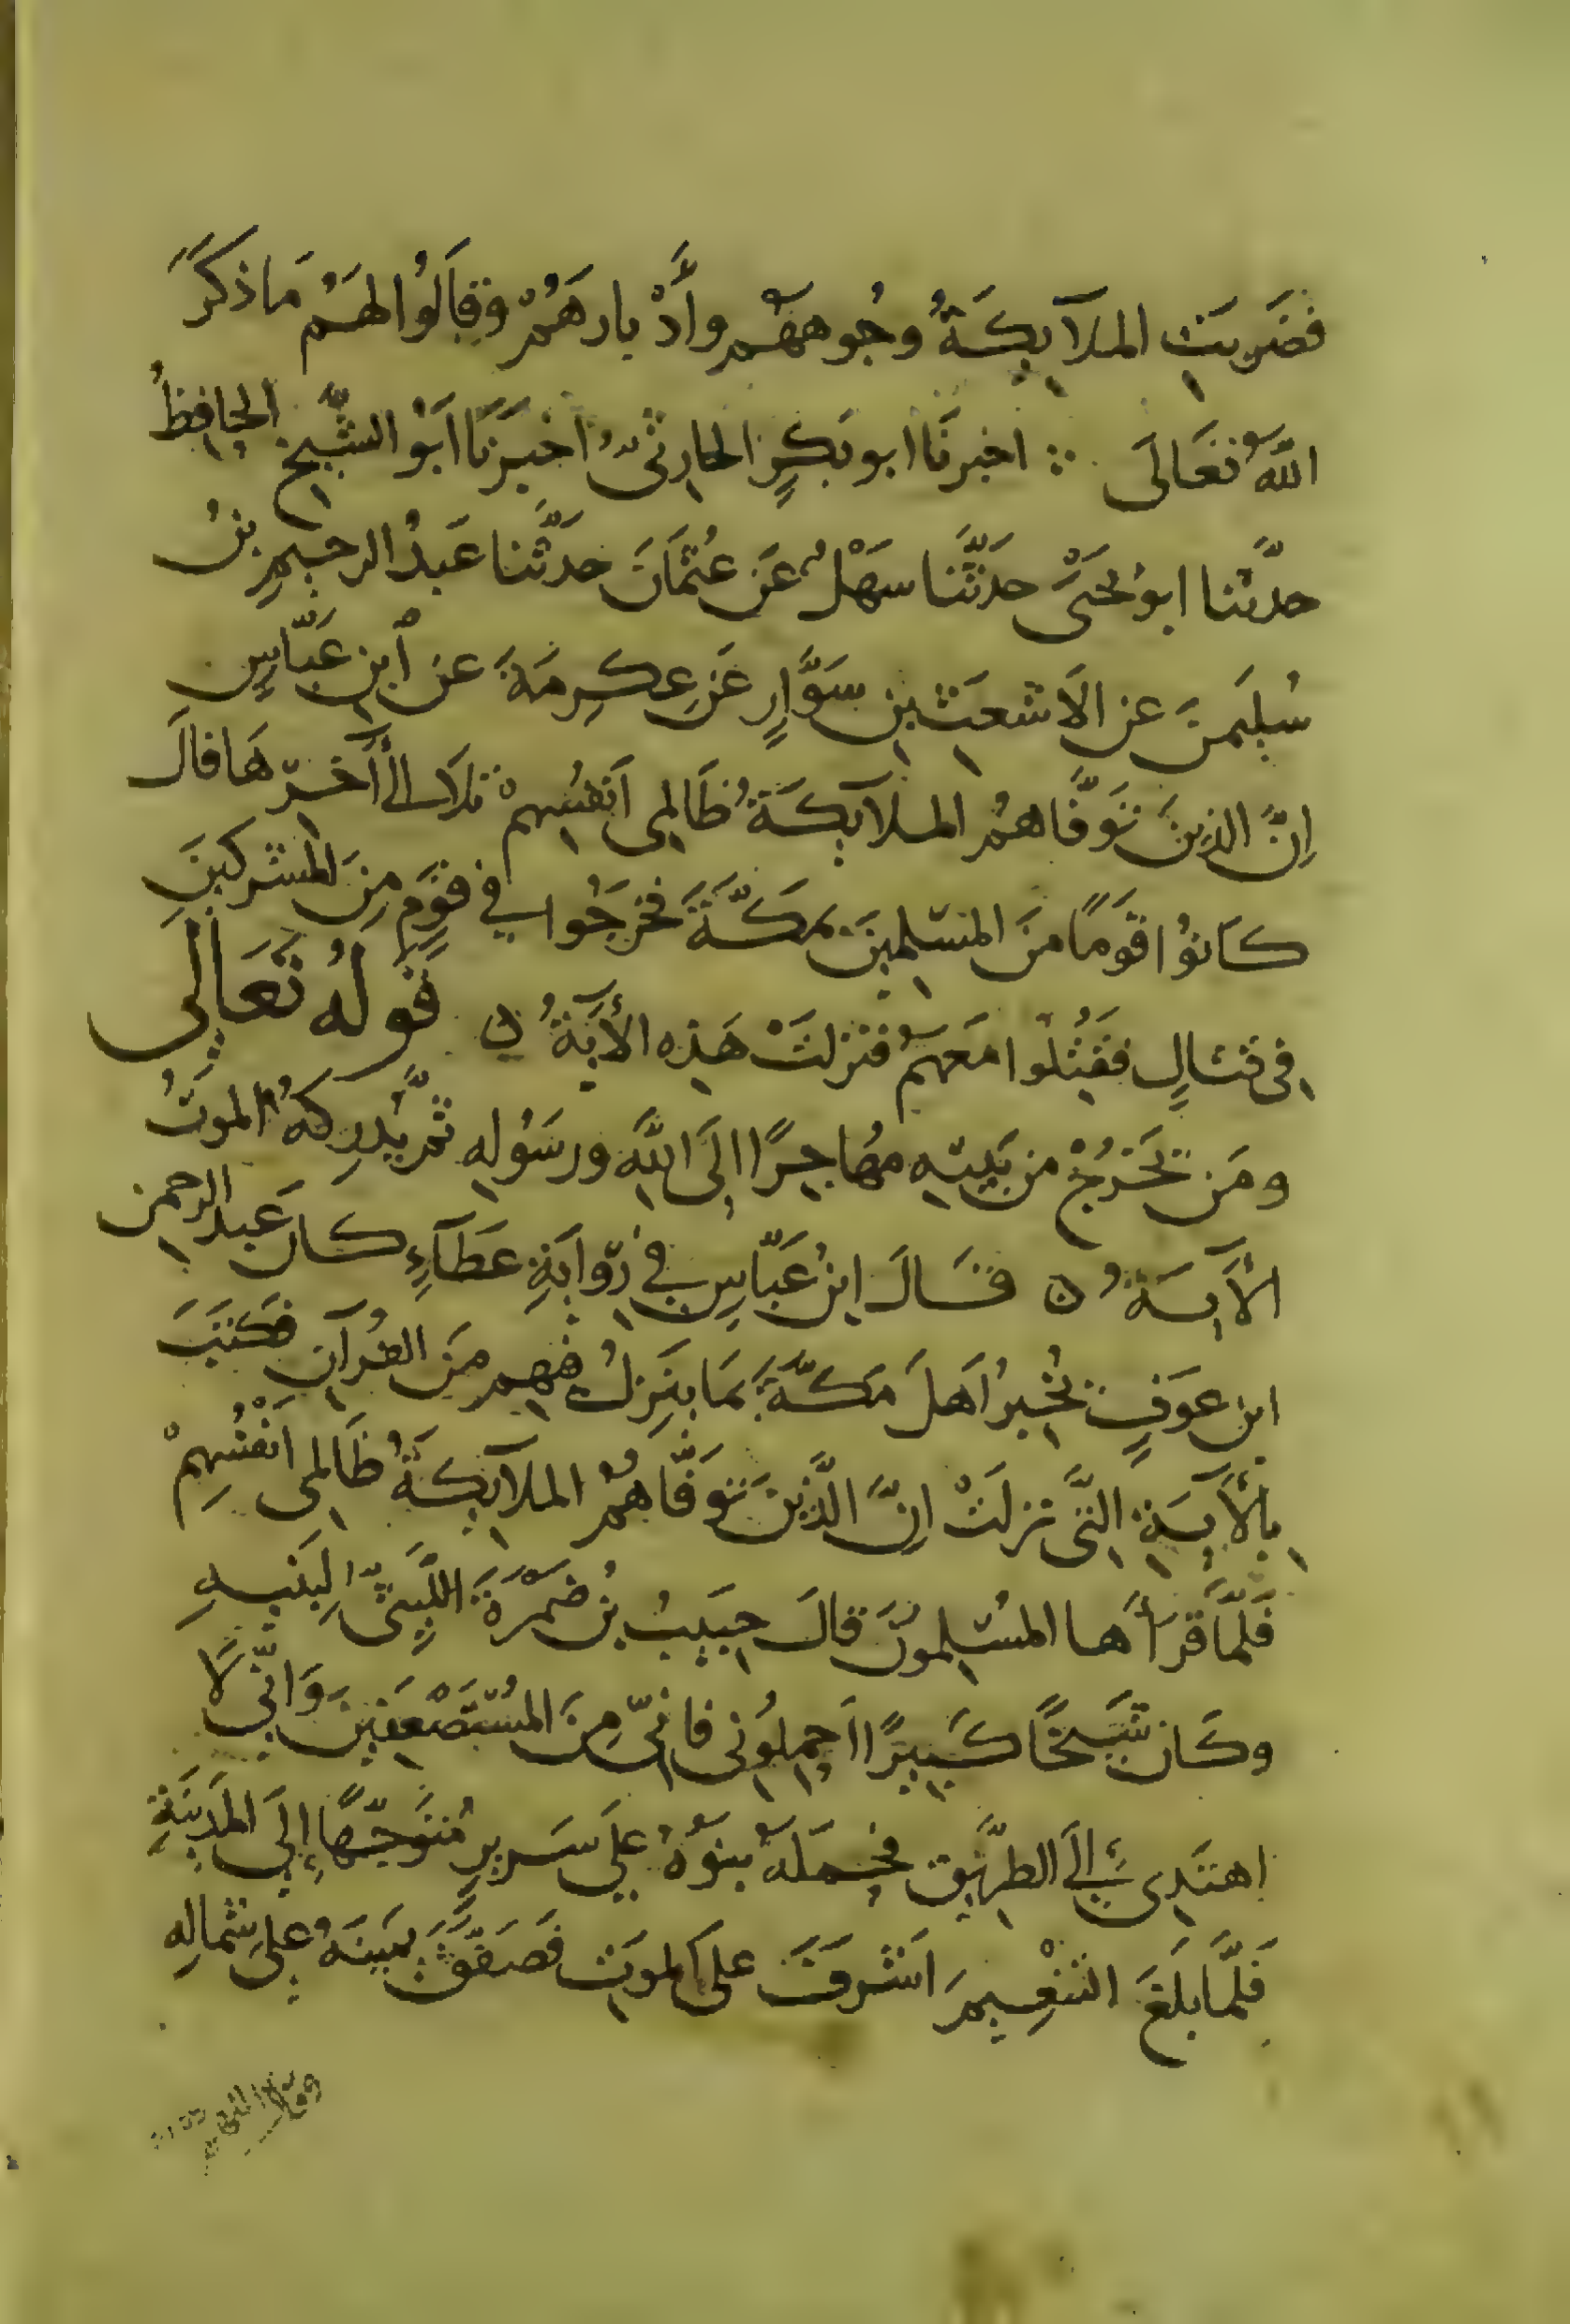 فضَربَتِ الملآيكَةُ وجُوههُم وأَدْبارهَمُ وقَالُوا لهَمُ مَا ذكرَ
اللهُ تعَالَى ∴ اخبرنَا ابو بَكرٍ الحارِثىُّ اخبَرنَا ابَوُ الشَّيخِ الحافِظُ
حدَّثنا ابو يحَيَى حدَثَّنا سَهْلُ عَن عُثمَانَ حدَثَّنا عَبدُ الرحيمِ بنُ
سُليَمنَ عن الاَشعَثِ بنِ سَوَّارٍ عَن عِكرِمَةَ عَن ابنِ عَبّاسٍ
اِنَّ الذِينَ تَوَفَّاهمُ الملآيكَةُ ظَالمِى اَنفُسِهمْ تلاَ الى أَخرِها قالَ
كاَنوُا قوَمًا مِنَ المسُلِمينَ بمكَّةَ فخرَجُوا في قوَمٍ مِنَ المشركينَ
فِى قتالٍ فقُتِلُوا مَعهَمُ فنزلَتْ هَذِه الأيَةُ ه قَولُهُ تَعَالَى
ومَن يَخرُجْ مِن بَيتِهِ مهُاجِرًا اِلَى اللهِ ورسَوُلِهِ ثمَّ يُدرِكهُ الموَتُ
الآيَةُ ه قالَ ابنُ عَبّاسٍ فِي رِوَايَةِ عَطَآءٍ كانَ عَبد الرحمنِ
ابن عوَفٍ يُخبرُ اَهلَ مَكَّةَ بمَا ينَزِلُ فيهِم مِنَ القُرآنِ فكتَبَ
بِالأيَةِ التَّى نزلَتْ اِنَّ الَّذِينَ تَوَفَّاهمُ الملآيكَةُ ظَالمِى اَنفُسِهِمْ
فَلمَّا قرَأهَا المُسلِمونَ قالَ حبَيِبُ بنُ ضَمْرَةَ اللَّيثىُّ لِبَنيهِ
وكَانَ شَيخًا كَبيرًا احمِلُونِى فانىِّ مِنَ المُستَضْعفَينَ وَانىِّ لاَ
اهتَدِى الىَ الطرَّيقِ فحمَلهَ بنوَهُ علَي سَريرٍ مُتوَجِّهًا اِلَى المَدينَةِ
فَلمَّا بلَغَ التنْعِيمَ اَشرَفَ علَى الموَتِ فصَفقَّ يمَينَهُ علَى شِمالِهِ